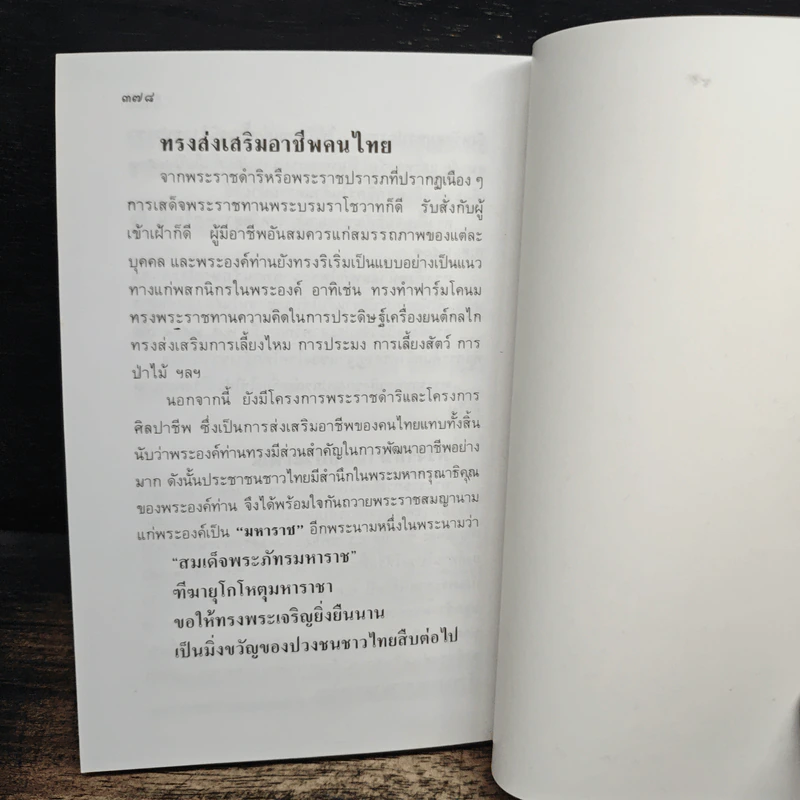 ๓๗๘
ทรงส่งเสริมอาชีพคนไทย
จากพระราชดำริหรือพระราชปรารภที่ปรากฏเนือง ๆ
การเสด็จพระราชทานพระบรมราโชวาทก็ดี รับสั่งกับผู้
เข้าเฝ้าก็ดี ผู้มีอาชีพอันสมควรแก่สมรรถภาพของแต่ละ
บุคคล และพระองค์ท่านยังทรงริเริ่มเป็นแบบอย่างเป็นแนว
ทางแก่พสกนิกรในพระองค์ อาทิเช่น ทรงทำฟาร์มโคนม
ทรงพระราชทานความคิดในการประดิษฐ์เครื่องยนต์กลไก
ทรงส่งเสริมการเลี้ยงไหม การประมง การเลี้ยงสัตว์ การ
ป่าไม้ ฯลฯ
นอกจากนี้ ยังมีโครงการพระราชดำริและโครงการ
ศิลปาชีพ ซึ่งเป็นการส่งเสริมอาชีพของคนไทยแทบทั้งสิ้น
นับว่าพระองค์ท่านทรงมีส่วนสำคัญในการพัฒนาอาชีพอย่าง
มาก ดังนั้นประชาชนชาวไทยมีสำนึกในพระมหากรุณาธิคุณ
ของพระองค์ท่าน จึงได้พร้อมใจกันถวายพระราชสมญานาม
แก่พระองค์เป็น “มหาราช” อีกพระนามหนึ่งในพระนามว่า
“สมเด็จพระภัทรมหาราช”
ฑีฆายุโกโหตุมหาราชา
ขอให้ทรงพระเจริญยิ่งยืนนาน
เป็นมิ่งขวัญของปวงชนชาวไทยสืบต่อไป